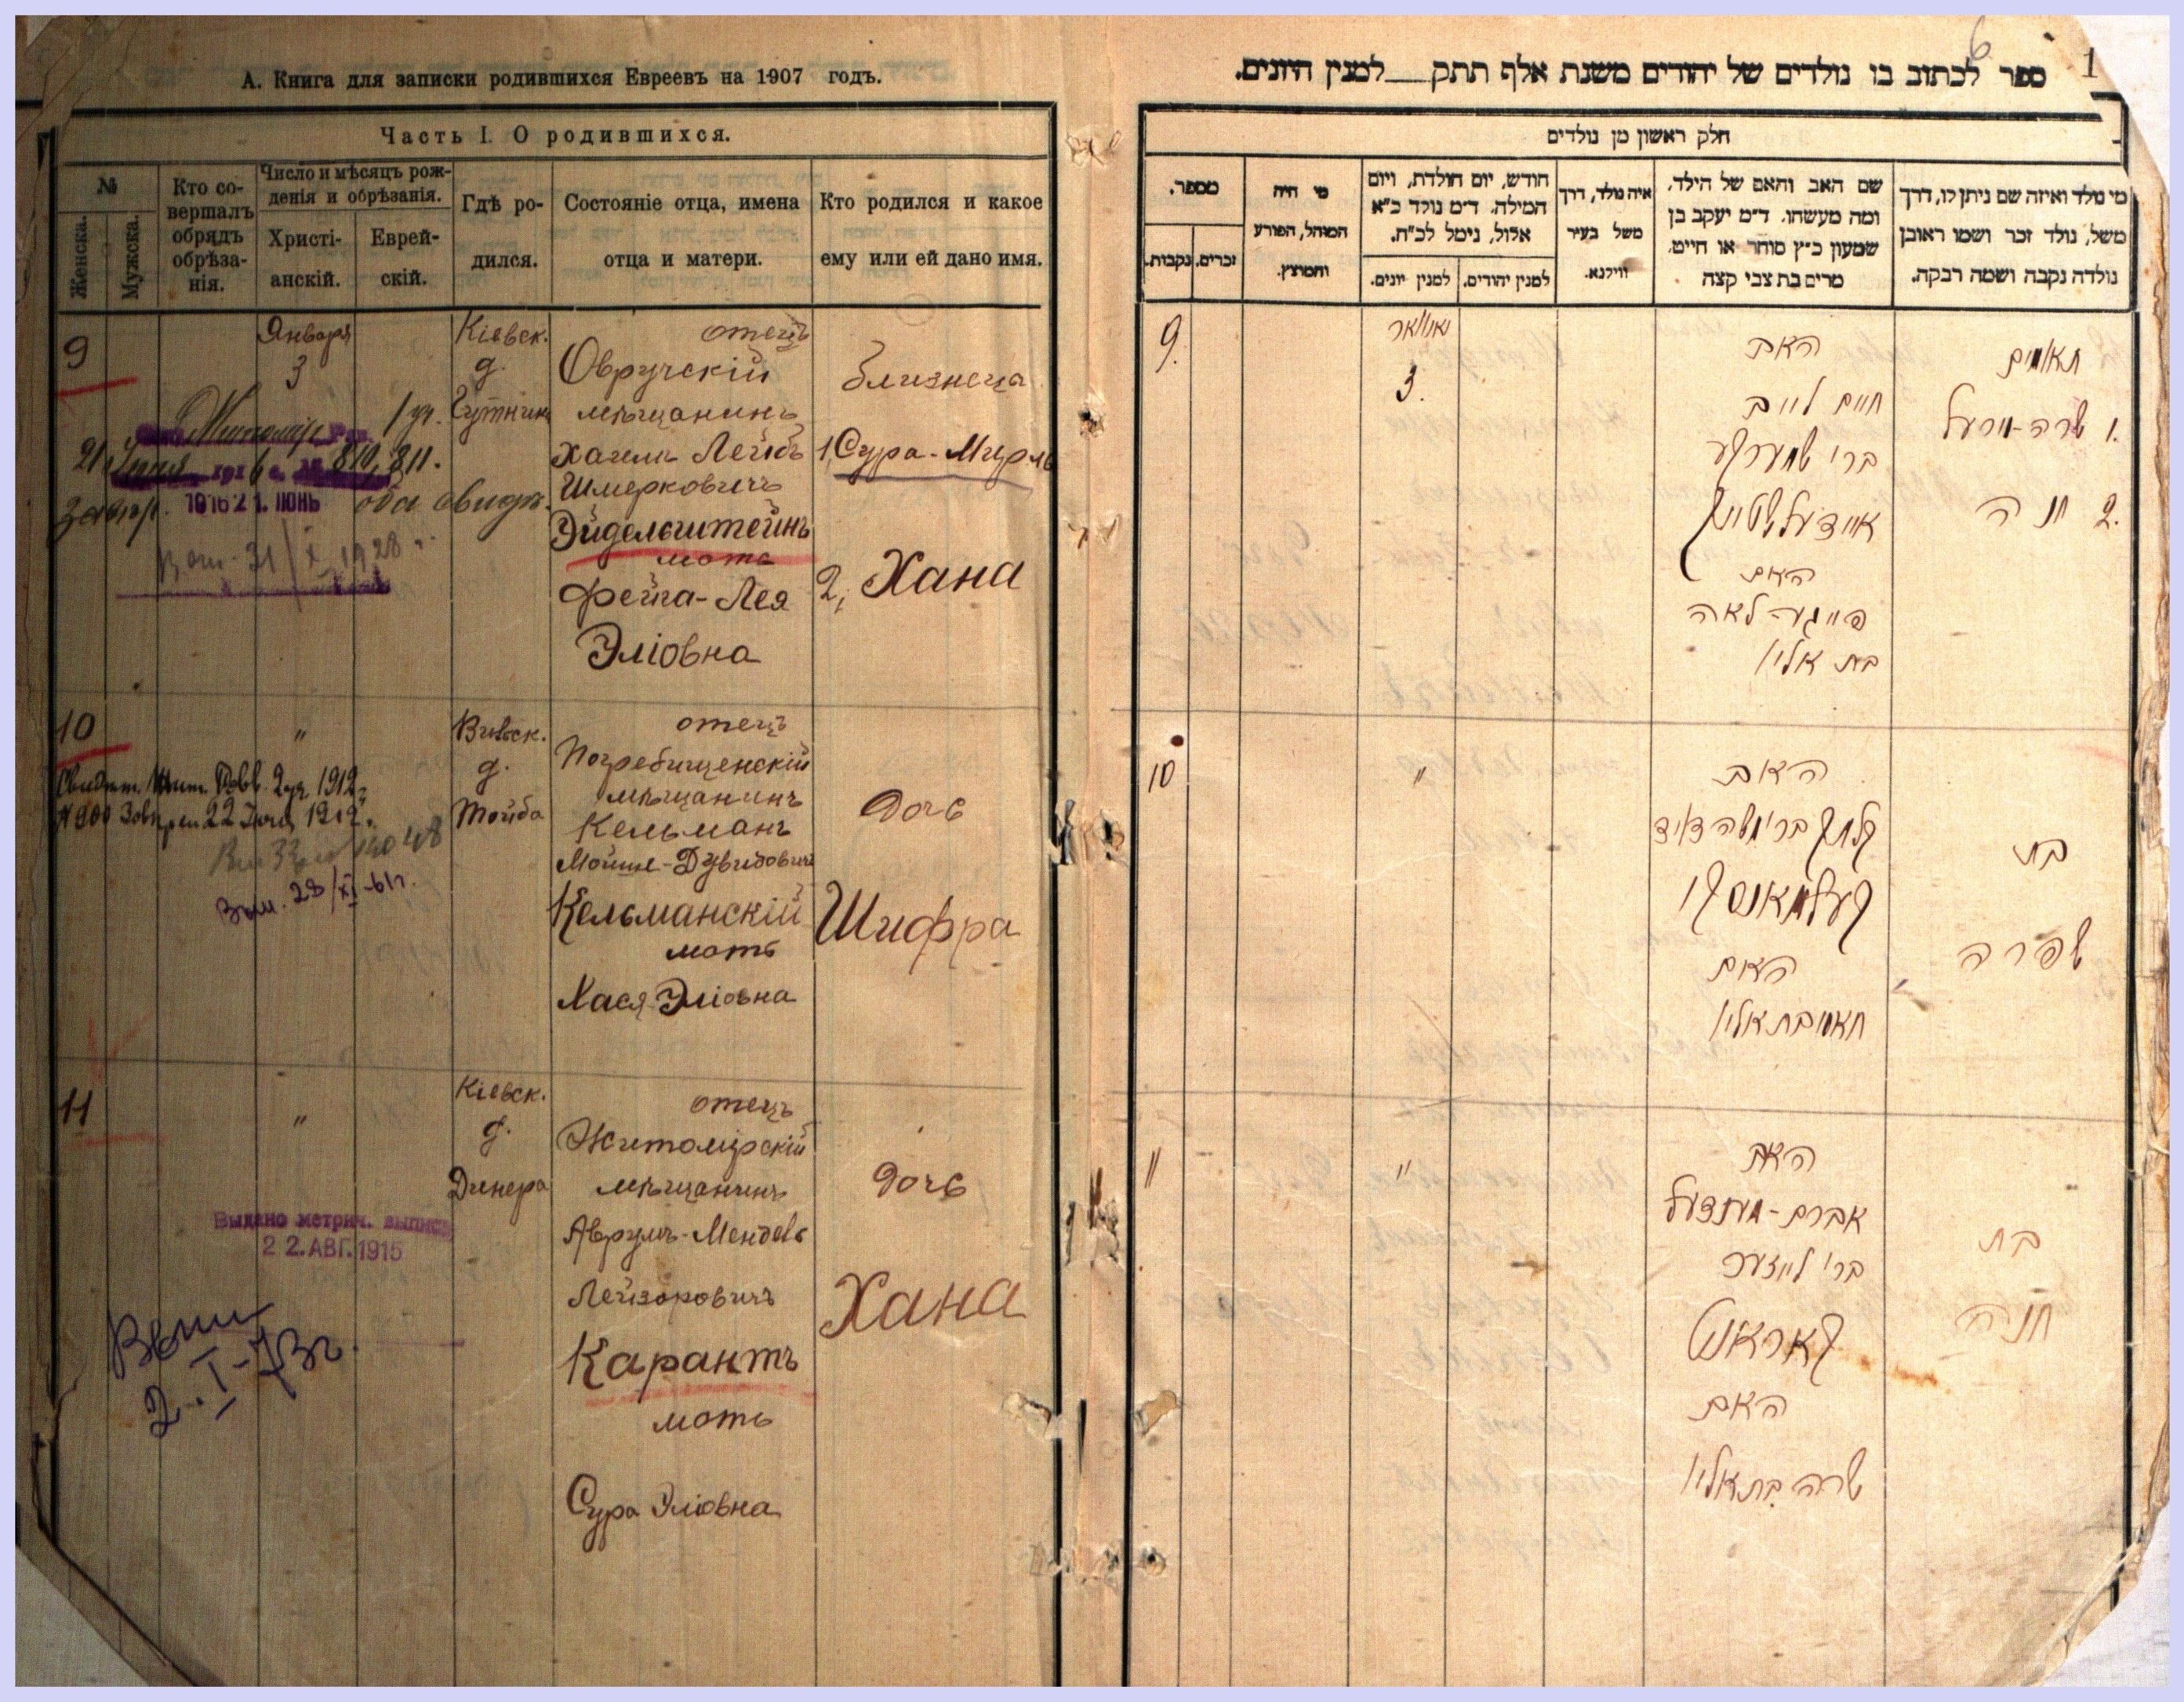 А. Книга для записки родившихся Евреевъ на 1907 годъ.
Часть I. О родившихся.
№
Женска.
Мужска.
Кто со-
вершалъ
обрядъ
обрѣза-
нія.
Число и мѣсяцъ рож-
денія и обрѣзанія.
Христі-
анскій.
Еврей-
скій.
Гдѣ ро-
дился.
Состояніе отца, имена
отца и матери.
Кто родился и какое
ему или ей дано имя.
9
Января
3
Кіевск.
д.
отецъ
Овручскій
мѣщанинъ
Хаимъ Лейбъ
Шмерковичъ
Эйдельштейнъ
мать
Фейга-Лея
Эліовна
близнеца
1, Сура-Мирль
2, Хана
810, 811.
1916 21. ІЮНЬ
31/X 1928
10
"
д.
отецъ
Погребищенскій
мѣщанинъ
Кельманъ
Мойше-Дувидовичъ
Кельманскій
мать
Хася Эліовна
дочь
Шифра
2 уч 1912 г.
22 1912 г.
28/XI-61г.
11
"
Кіевск.
д.
Динера
отецъ
Житомірскій
мѣщанинъ
Аврумъ-Мендель
Лейзоровичъ
Карантъ
мать
Сура Эліовна
дочь
Хана
Выдано метрич. выпись
22. АВГ. 1915
2.I-73г.
6
1
ספר לכתוב בו נולדים של יהודים משנת אלף תתק__למנין היונים.
חלק ראשון מן נולדים
מספר.
זכרים.
נקבות.
מי היה
המוהל, הפורע
והמוצץ.
חודש, יום הולדת, ויום
המילה. ד״מ נולד כ״א
אלול, נימל לכ״ח.
למנין יונים.
למנין יהודים.
איה נולד, דרך
משל בעיר
ווילנא.
שם האב והאם של הילד,
ומה מעשהו. ד״מ יעקב בן
שמעון כ״ץ סוחר או חייט,
מרים בת צבי קצה
מי נולד ואיזה שם ניתן לו, דרך
משל, נולד זכר ושמו ראובן
נולדה נקבה ושמה רבקה.
9.
יאנואר
3.
האב
חיים לייב
ברי שמערקע
איידעלשטיין
האם
פייגע-לאה
בת אליו
תאומים
1. שרה-מירעל
2. חנה
10
"
האב
קלמן ברי משה דוד
קעלמאנסקי
האם
חאסי בת אליו
בת
שפרה
11
"
האב
אברם-מענדעל
ברי לייזער
קאראנט
האם
שרה בת אליו
בת
חנה